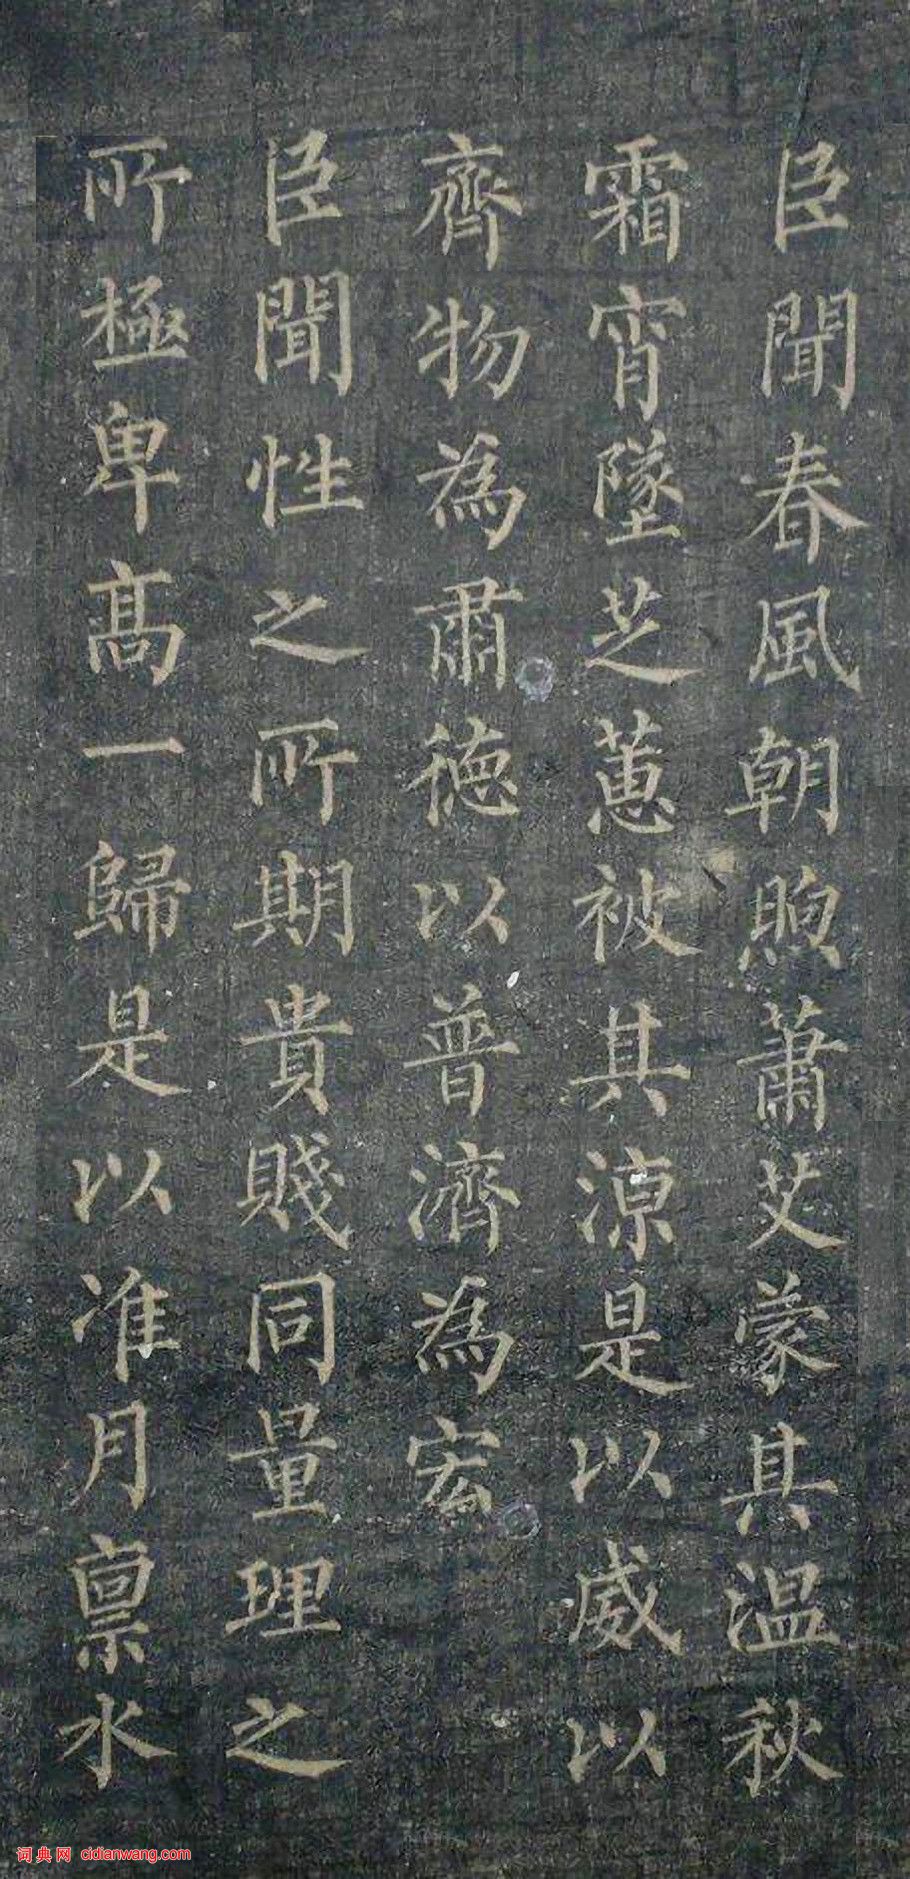 臣聞春風朝煦蕭艾蒙其溫秋
霜宵墜芝蕙被其涼是以威以
齊物為肅德以普濟為宏
臣聞性之所期貴賤同量理之
所極卑高一歸是以准月稟水
词典网 cidianwang.com